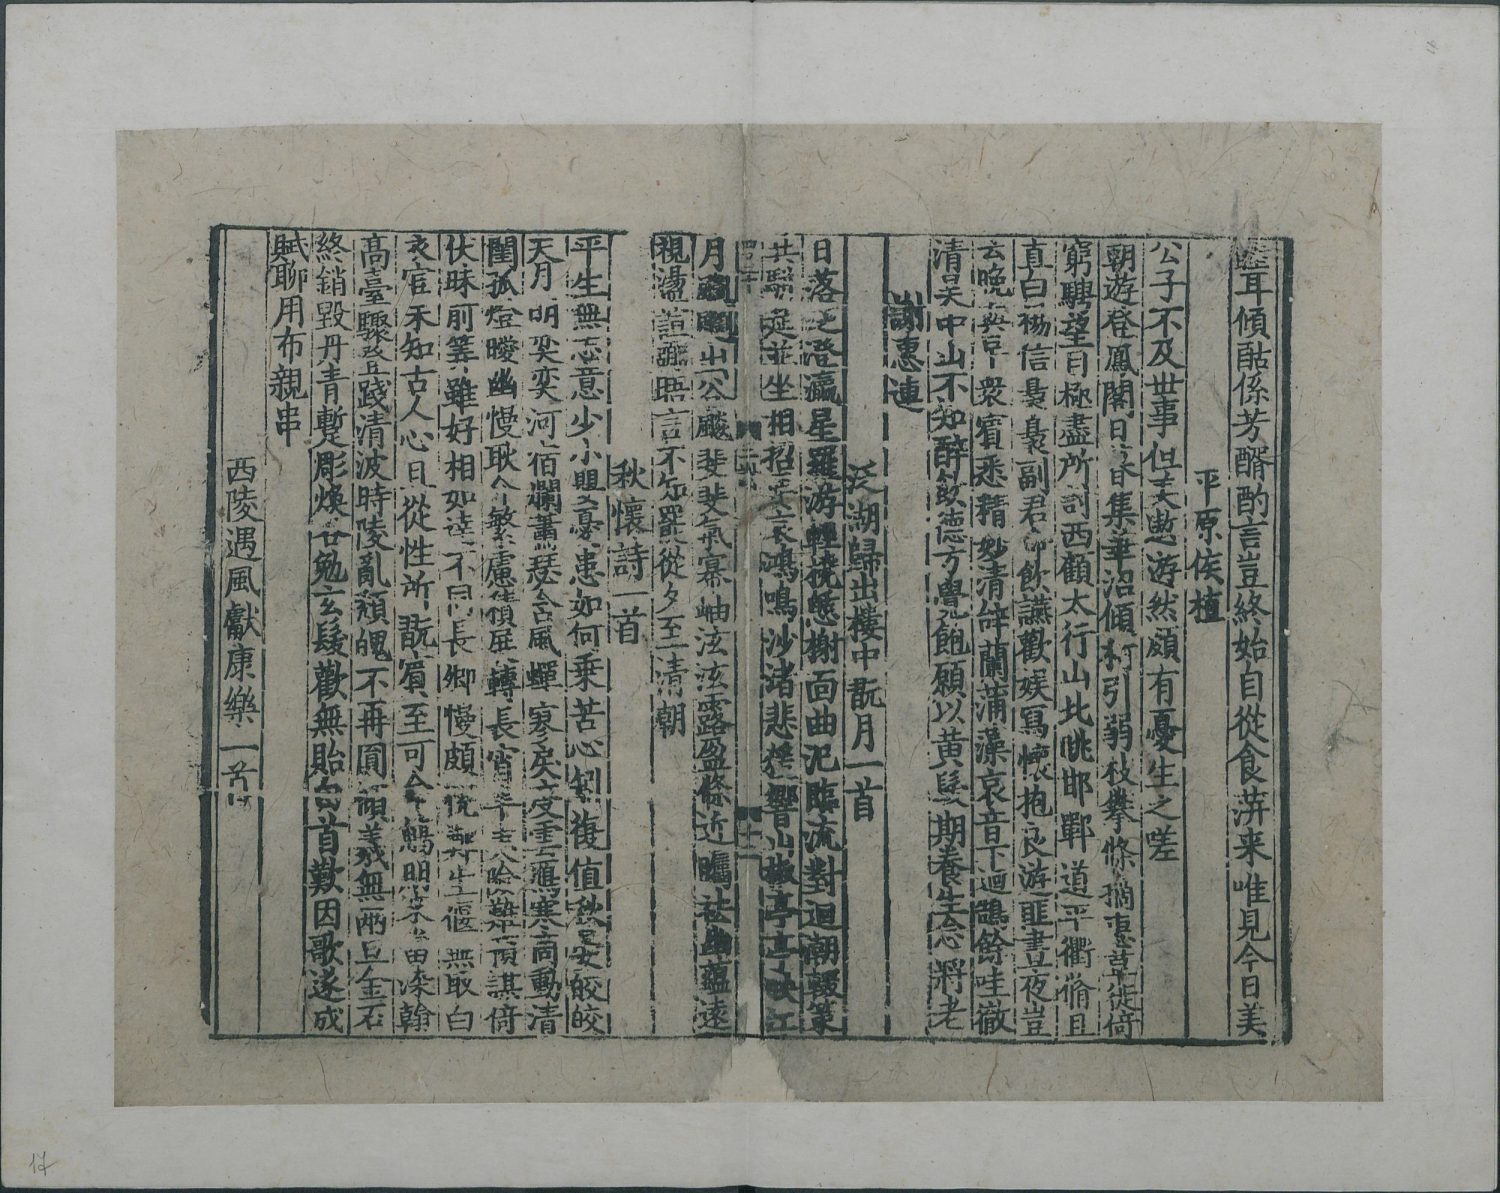 睦耳傾酤係芳醑酌言豈終始自從食蓱来唯見今日美
平原侯植
公子不及世事但美遨游然頗有憂生之嗟
朝遊登鳳閣日暮集華沼傾柯引弱枝攀條摘蕙草徙倚
窮騁望目極盡所討西顧太行山北眺邯鄲道平衢脩且
直白楊信裊裊副君命飲讌歡娱寫懷抱良游匪晝夜豈
云晚與早衆賓悉精妙清辝蘭蒲藻哀音下迴鵠餘哇徹
清昊中山不知醉飲德方覺飽願以黃髮期養生念將老
謝惠連
泛湖歸出樓中翫月一首
日落泛澄瀛星羅游輕橈憩榭面曲汜臨流對迴潮輟策
共駢筵並坐相招要哀鴻鳴沙渚悲猨響山椒亭亭映江
月瀏瀏出谷飈斐斐氣冪岫泫泫露盈條近矚祛幽蘊遠
視盪諠囂晤言不知罷從夕至清朝
秋懷詩一首
平生無志意少小嬰憂患如何乗苦心矧復值秋晏皎皎
天月明奕奕河宿爛蕭瑟含風蟬寥戾度雲鴈寒商動清
閨孤燈曖幽幔耿介繁慮積展轉長宵半夷險難預謀倚
伏昧前筭雖好相如達不同長卿慢頗悅鄭生偃無取白
衣宦未知古人心且從性所翫賓至可命觴朋來當染翰
高臺驟登踐清波時陵亂頹魄不再圓傾羲無兩旦金石
終銷毀丹青暫彫煥各勉玄髮歡無貽白首歎因歌遂成
賦聊用布親串
西陵遇風獻康樂一首
17